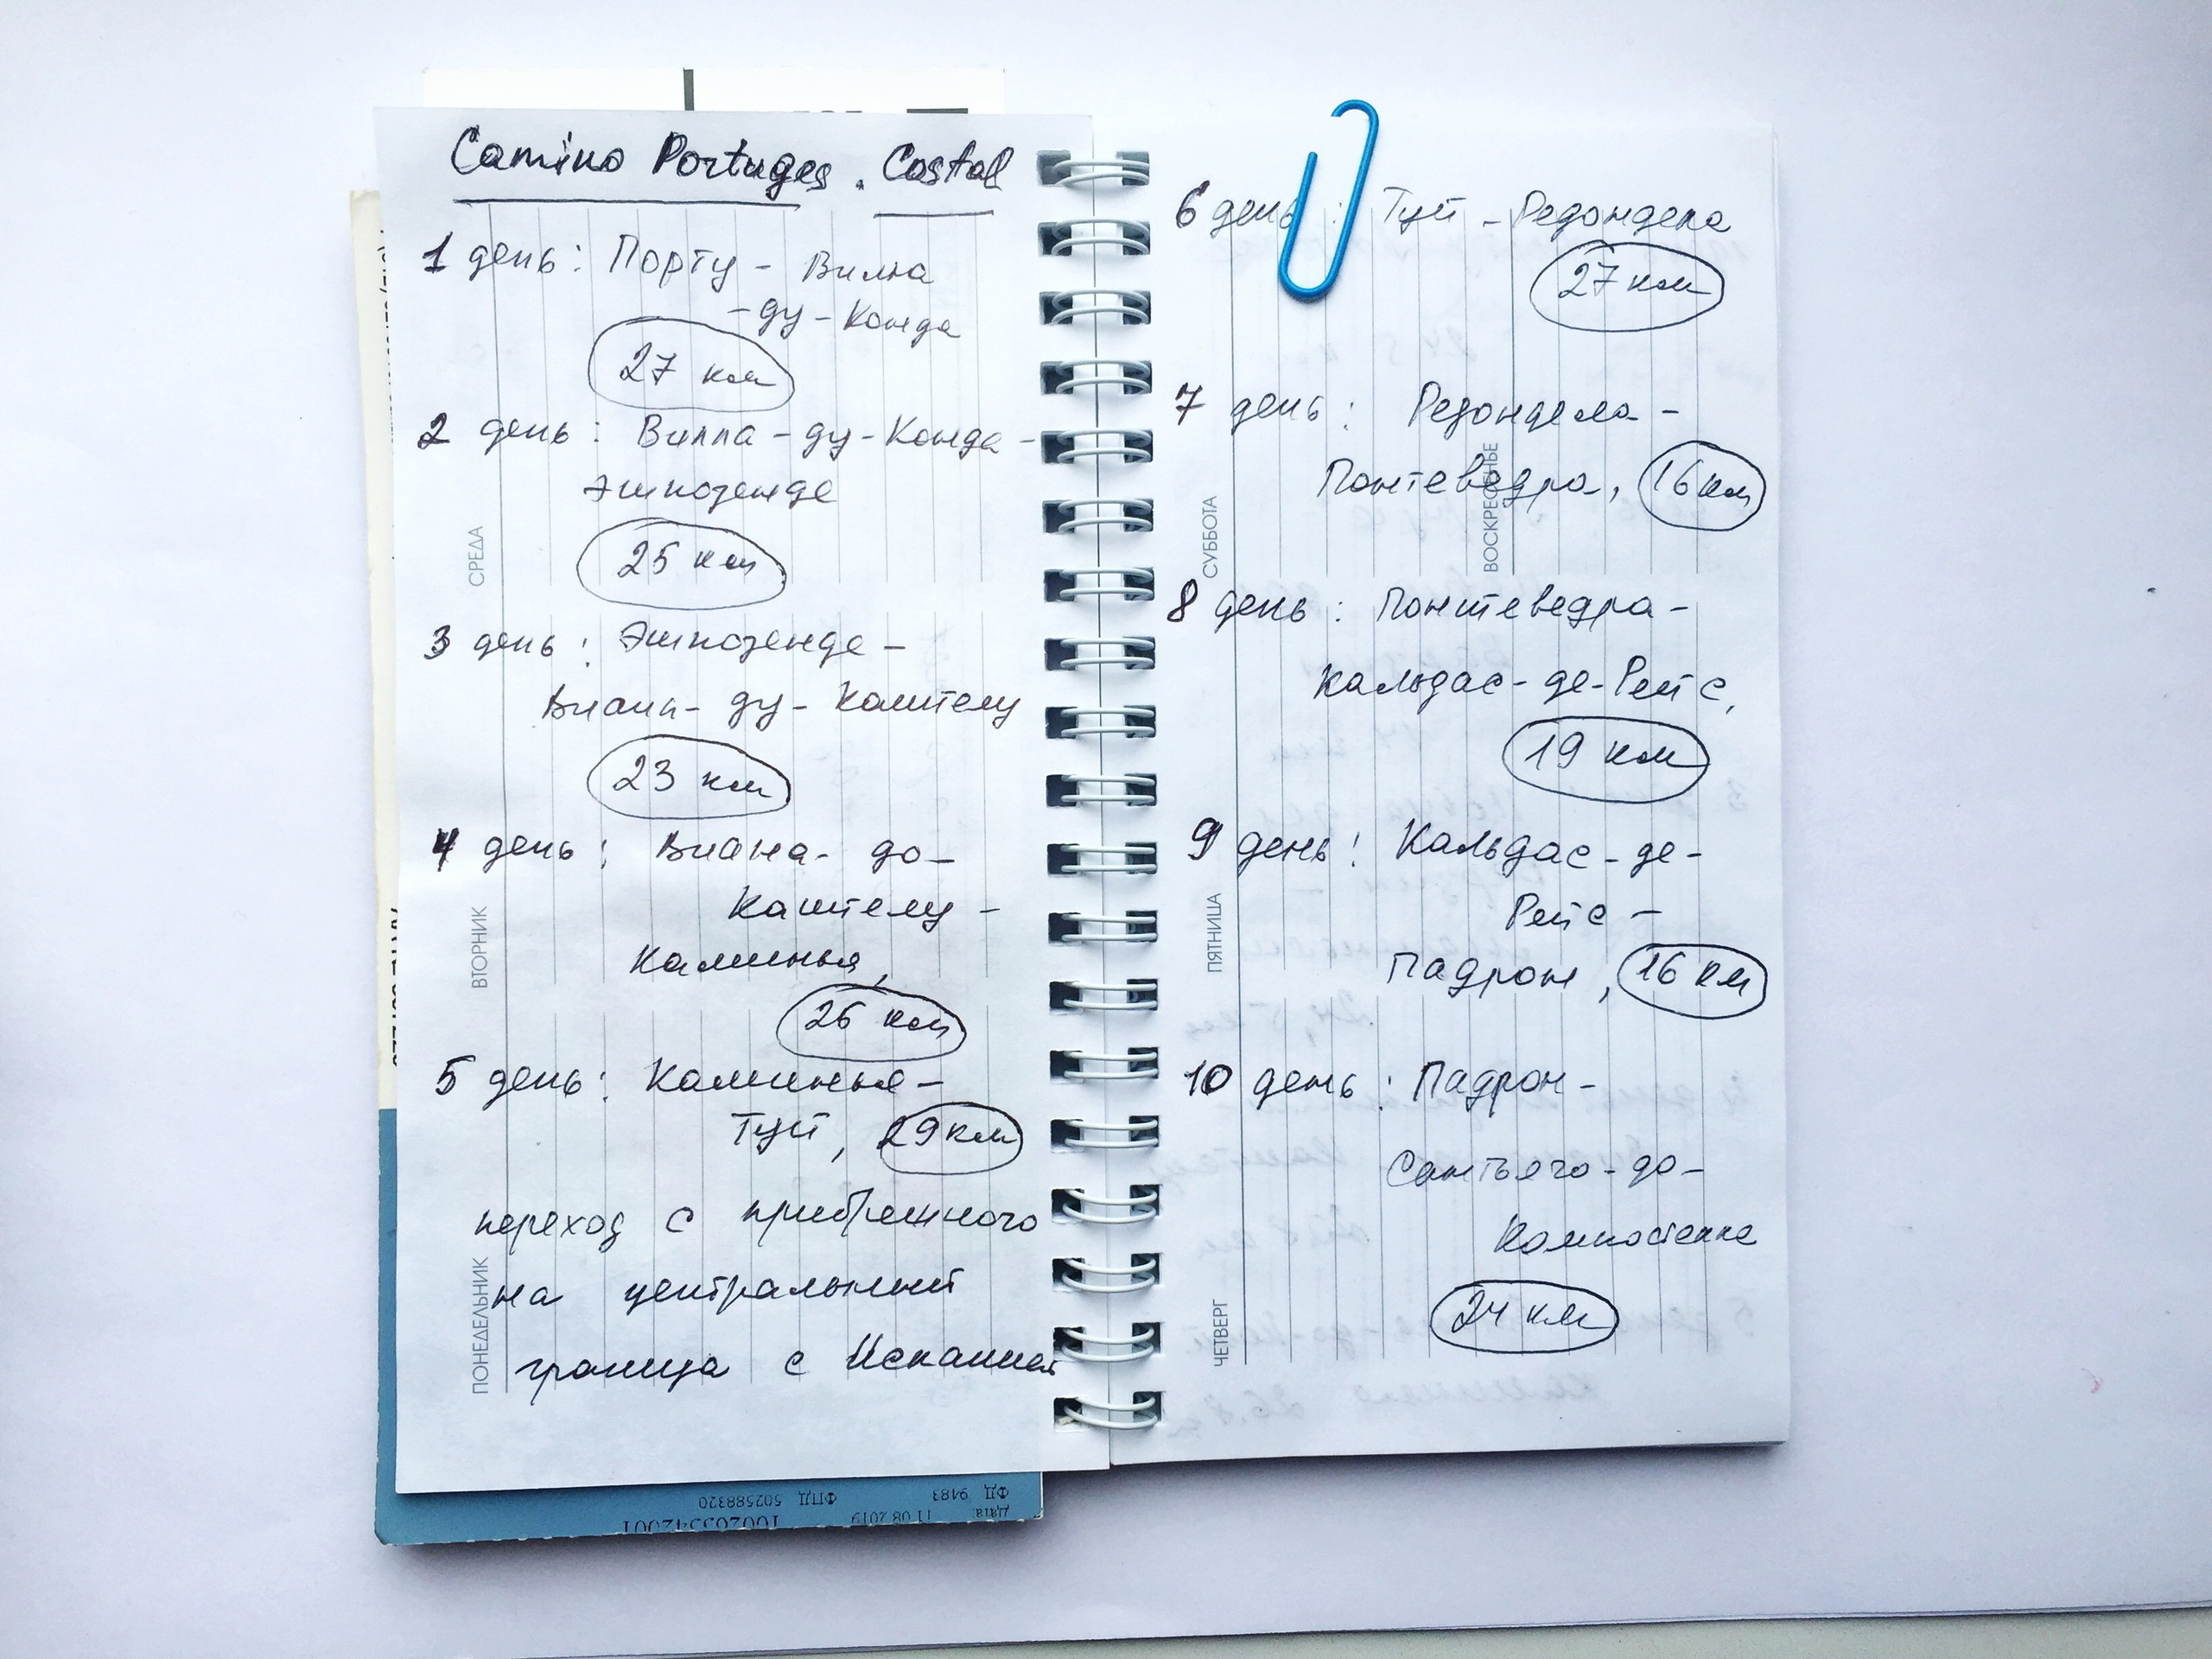 Camino Portuges. Costal
1 день: Порту - Вилла
- ду - Конда
27 км
2 день: Вилла - ду - Конда -
Эшпозенде
25 км
СРЕДА
3 день: Эшпозенде -
Виана - ду - Каштелу
23 км
4 день: Виана - до -
Каштелу -
Каминья,
26 км
ВТОРНИК
5 день: Каминья -
Туй, 29 км
переход с прибрежного
на центральный
граница с Испанией
ПОНЕДЕЛЬНИК
6 день: Туй - Редондела
27 км
7 день: Редондела -
Понтеведра, 16 км
СУББОТА
ВОСКРЕСЕНЬЕ
8 день: Понтеведра -
Кальдас - де - Рейс,
19 км
9 день: Кальдас - де -
Рейс -
Падрон, 16 км
ПЯТНИЦА
10 день: Падрон -
Сантьяго - до -
Компостелла
24 км
ЧЕТВЕРГ
Дата: 11.08.2019
ФД 9483 ФПД 502588320